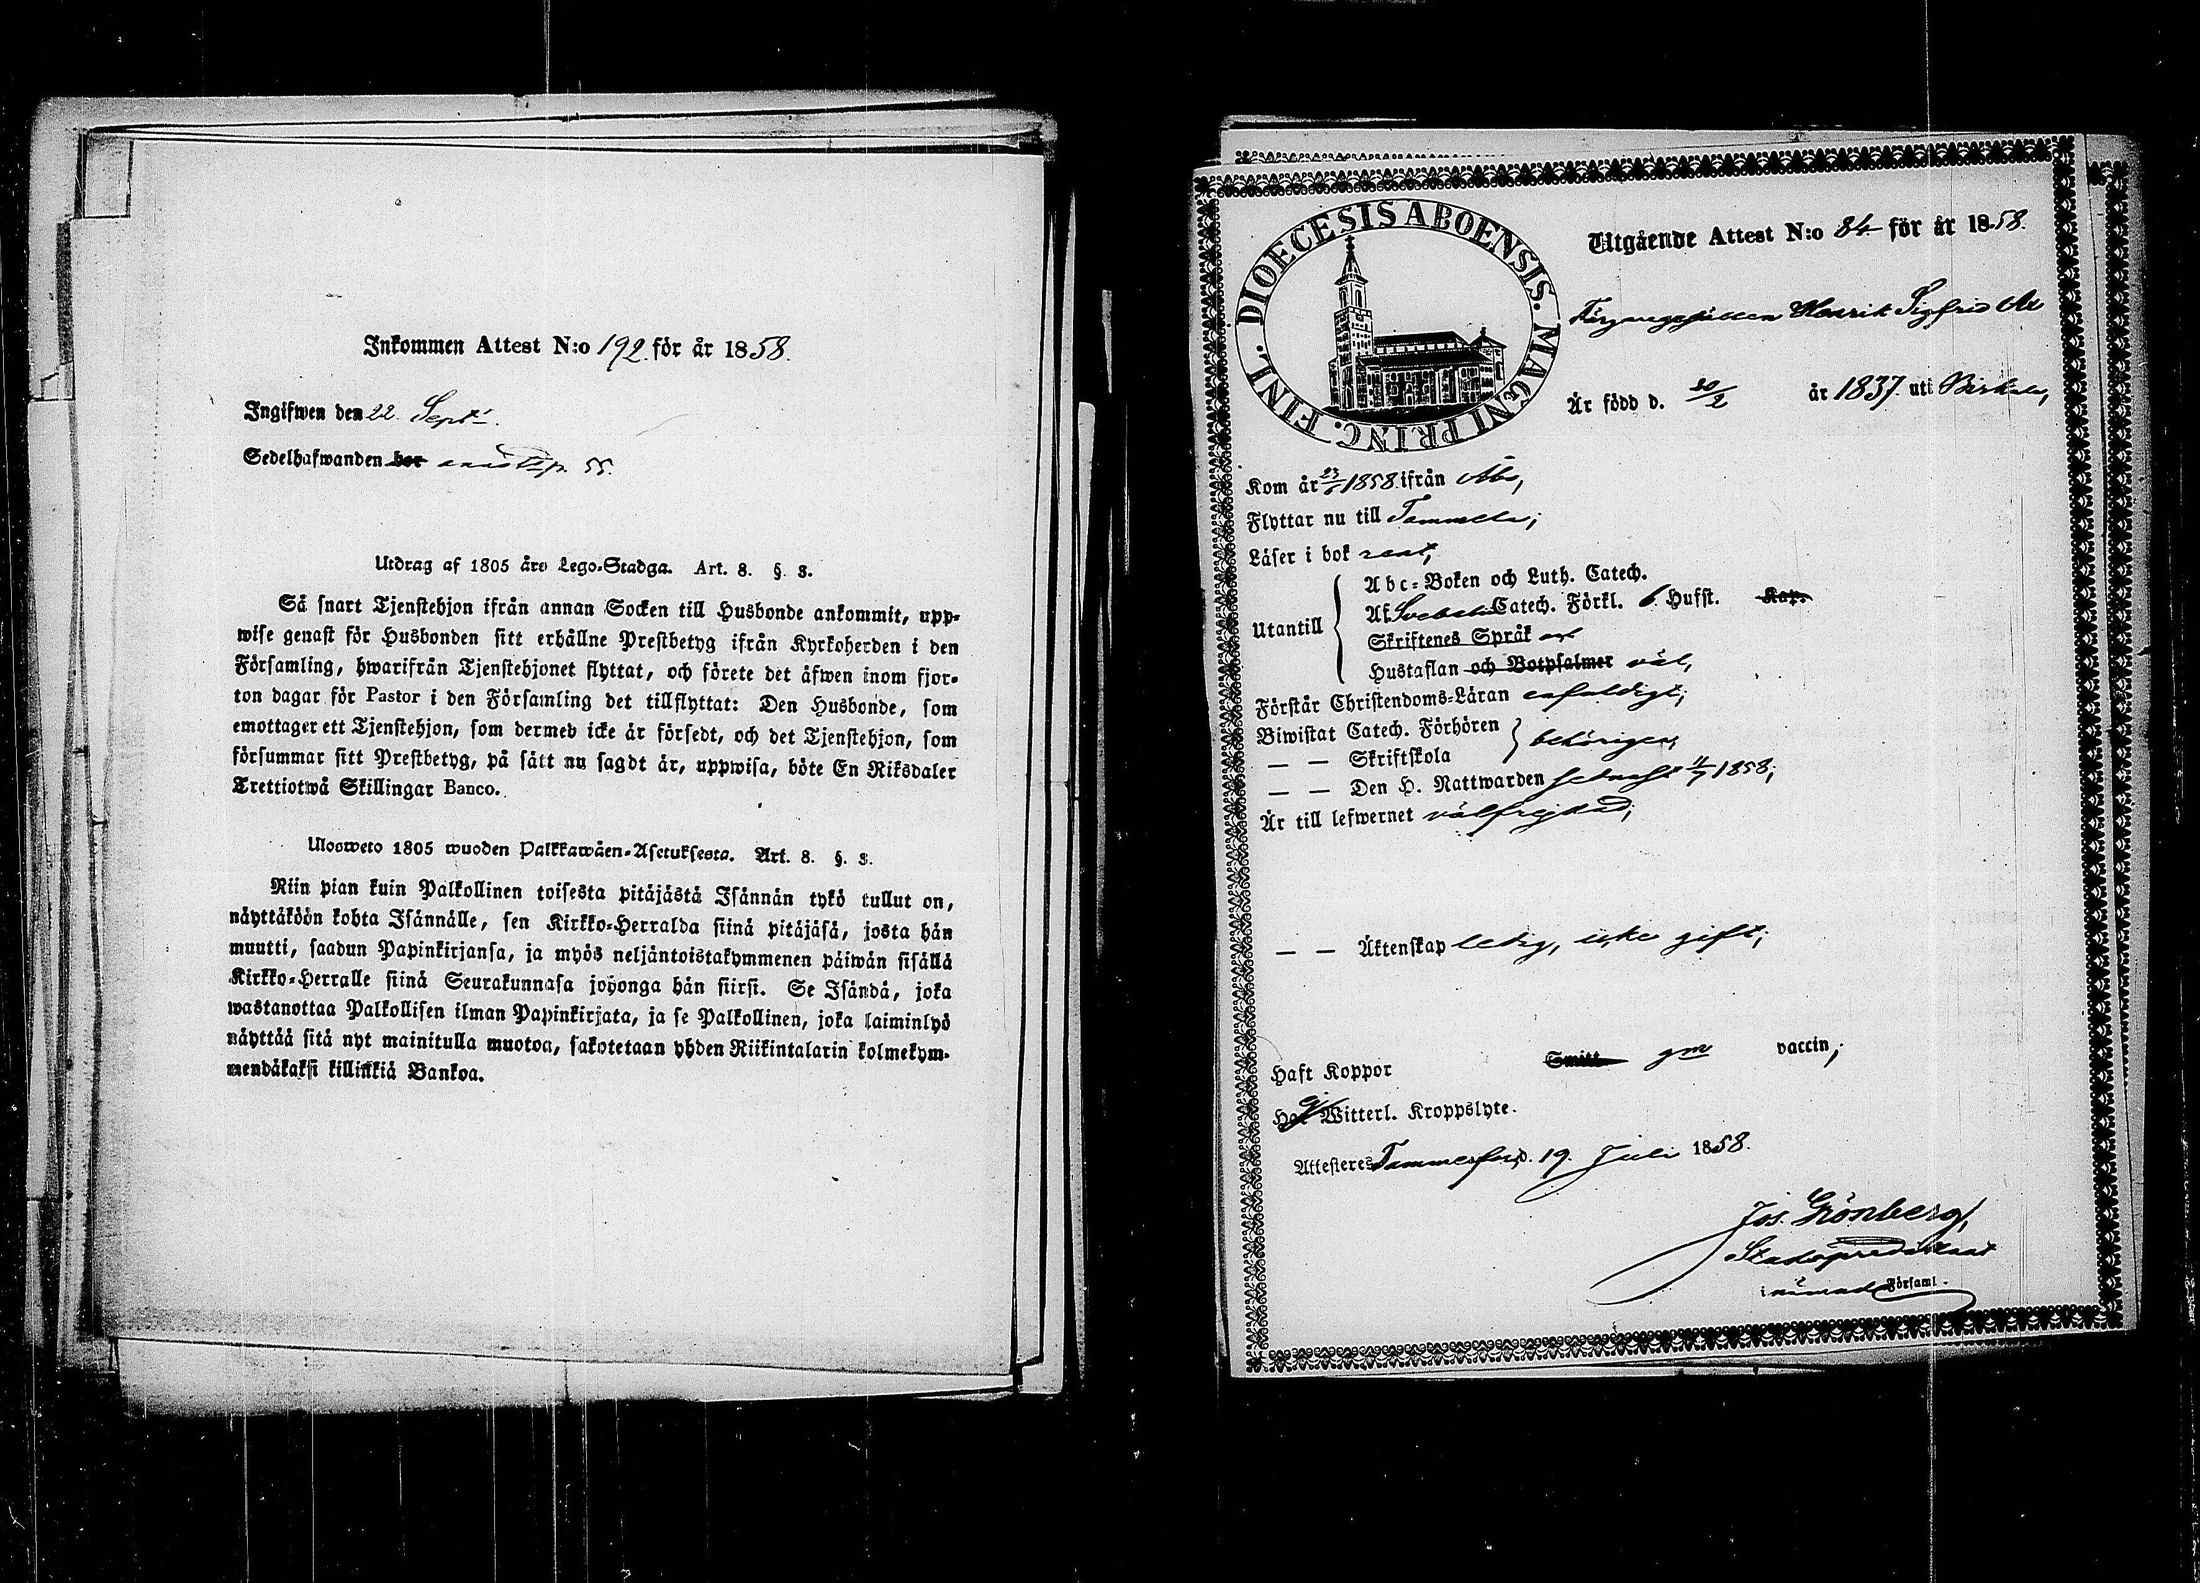 Inkommen Attest N:o 192 för år 1858.
Ingifwen den 22 Sept.
Sedelhafwanden bor 55.
Utdrag af 1805 års Lego-Stadga. Art. 8. §. 3.
Så snart Tjenstehjon ifrån annan Socken till Husbonde ankommit, upp-
wise genast för Husbonden sitt erhållne Prestbetyg ifrån Kyrkoherden i den
Församling, hwarifrån Tjenstehjonet flyttat, och förete det äfwen inom fjor-
ton dagar för Pastor i den Församling det tillflyttat: Den Husbonde, som
emottager ett Tjenstehjon, som dermed icke är försedt, och det Tjenstehjon, som
försummar sitt Prestbetyg, på sätt nu sagdt är, uppwisa, böte En Riksdaler
Trettiotwå Skillingar Banco.
Ulosweto 1805 wuoden Palkkawäen-Asetuksesta. Art. 8. §. 3.
Niin pian kuin Palkollinen toisesta pitäjästä Isännän tykö tullut on,
näyttäköön kohta Isännälle, sen Kirkko-Herralda siinä pitäjäsä, josta hän
muutti, saadun Papinkirjansa, ja myös neljäntoistakymmenen päiwän sisällä
Kirkko-Herralle siinä Seurakunnasa johonga hän siirsi. Se Isändä, joka
wastanottaa Palkollisen ilman Papinkirjata, ja se Palkollinen, joka laiminlyö
näyttää sitä nyt mainitulla muotoa, sakotetaan yhden Riikintalarin kolmekym-
mendäkaksi killinkiä Bankoa.
DIOECESIS ABOENSIS. MAGNI PRINC. FINL.
Utgående Attest N:o 84 för år 1858.
Färgaregesällen Henrik Sigfrid
Är född d. 20/2 år 1837 uti Birkala,
Kom år 23/6 1858 ifrån Åbo,
Flyttar nu till Tammela;
Läser i bok rent;
Abc-Boken och Luth. Catech.
Utantill
Af Svebelii Catech. Förkl. 6 Hufst. Kap.
Skriftenes Språk
Hustaflan och Botpsalmer väl,
Förstår Christendoms-Läran enfaldigt;
Biwistat Catech. Förhören
behörigen,
— — Skriftskola
— — Den H. Nattwarden senast 11/7 1858;
Är till lefwernet välfrejdad;
— — Äktenskap ledig, icke gift;
Haft Koppor Smitt gm vaccin;
Ha Witterl. Kroppslyte.
Attesteres Tammerfors d. 19 Juli 1858.
Jos. Grönberg,
Stadspredikant
i Församl.